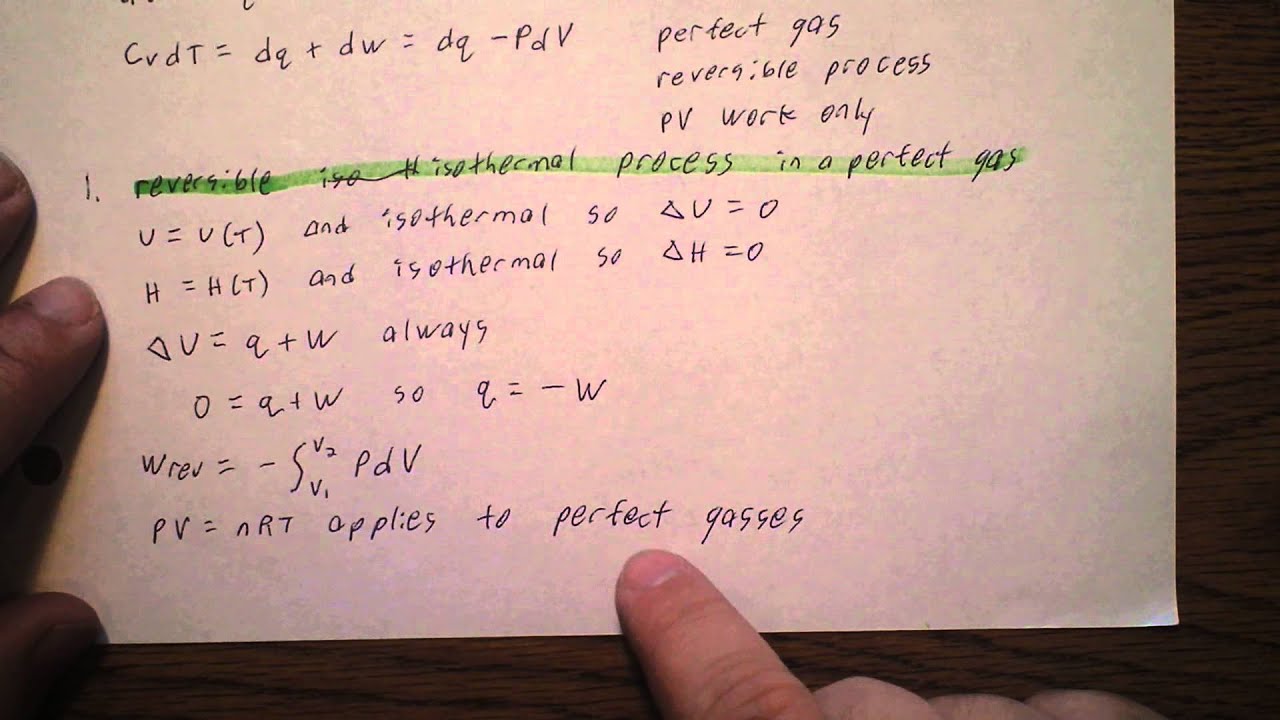 CvdT = dq + dw = dq - PdV perfect gas
reversible process
PV work only
1. reversible isothermal process in a perfect gas
U = U(T) and isothermal so ΔU = 0
H = H(T) and isothermal so ΔH = 0
ΔU = q + w always
0 = q + w so q = - w
Wrev = - ∫V₁V₂ PdV
PV = nRT applies to perfect gasses